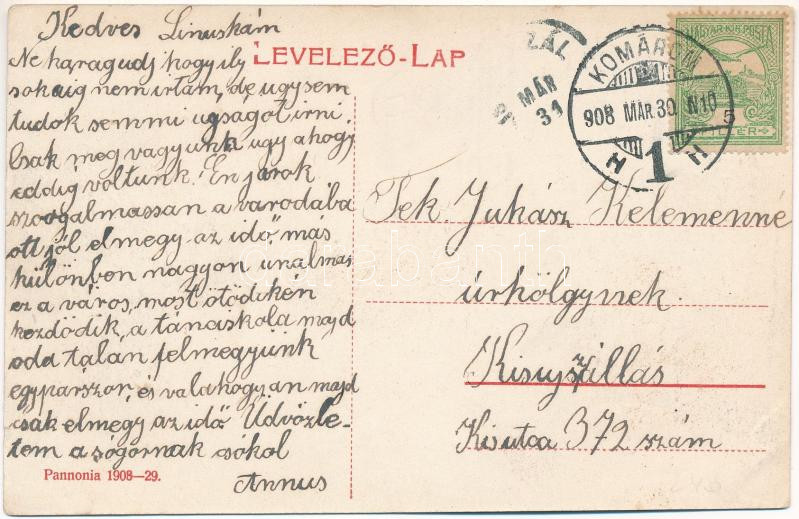 Kedves Linuskám
Ne haragudj hogy ily
sokáig nem irtam, de ugysem
tudok semmi ujságot irni.
Csak meg vagyunk ugy ahogy
eddig voltunk. Én járok
szorgalmassan a varodába
ott jól elmegy az idő más
különben nagyon unalmas
ez a város, most ötödikén
kezdődik a tánciskola majd
oda talán felmegyünk
egyparszor, és valahogyan majd
csak elmegy az idő. Üdvözle-
tem a sógornak csókol
Annus
LEVELEZŐ-LAP
Pannonia 1908—29.
MÁR
31
KOMÁROM
908 MÁR. 30. N10
H 1 H
MAGYAR KIR. POSTA
5
Tek. Juhász Kelemenné
úrhölgynek
Kisujszállás
Kisutca 372 szám